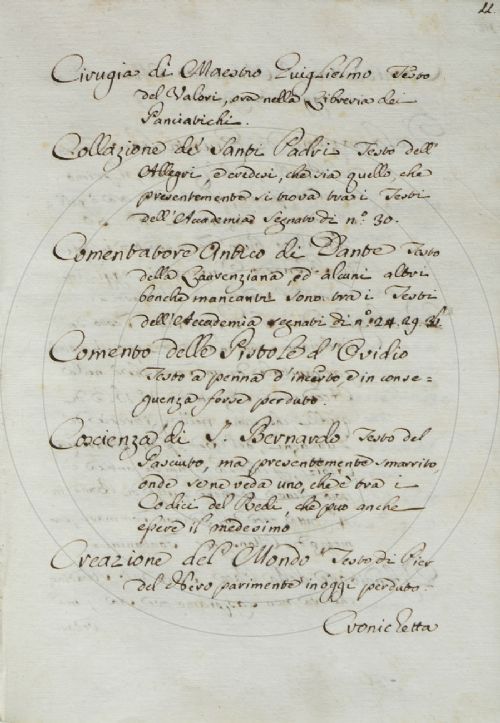 11.
Cirugia di Maestro Guiglielmo Testo
del Valori, ora nella Libreria dei
Panciatichi.
Collazione de' Santi Padri Testo dell'
Allegri, e credesi, che sia quello, che
presentemente si trova tra i Testi
dell'Accademia segnato di n.º 30.
Comentatore Antico di Dante Testo
della Laurenziana, ed alcuni altri
benche mancanti sono tra i Testi
dell'Accademia segnati di nº 24. 29. 31.
Comento delle Pistole d'Ovidio
Testo a penna d'incerto, e in conse=
guenza forse perduto.
Coscienza di S. Bernardo Testo del
Pasciuto, ma presentemente smarrito,
onde se ne veda uno, che è tra i
Codici del Redi, che può anche
essere il medesimo
Creazione del Mondo Testo di Pier
del Nero parimente in oggi perduto.
Cronichetta